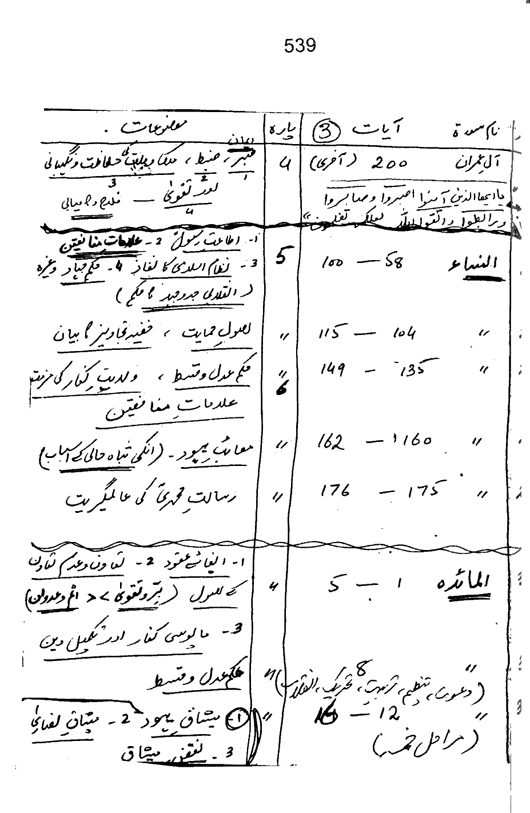 539
نام سورۃ آیات (3) پارہ موضوعات
آل عمران 200 (آخری) 4 صبر، ضبط، حفاظت و نگہبانی
ایمان
اور تقویٰ — فلاح و کامیابی
یا ایھا الذین آمنوا اصبروا وصابروا
ورابطوا واتقوا اللہ لعلکم تفلحون"
النساء 58 — 100 5 1- اطاعت رسول 2- علامات منافقین
3- نظام اسلامی کا نفاذ 4- حکم جہاد وغیرہ
(انقلابی جدوجہد کا حکم)
" 104 — 115 " اصول حمایت، خفیہ تجاویز کا بیان
" 135 — 149 " 6 حکم عدل و قسط، ولایت کفار کی حرمت
علامات منافقین
" 160 — 162 " معائب یہود - (انکی تباہ حالی کے اسباب)
" 175 — 176 " رسالت محمدیؐ کی عالمگیریت
المائدہ 1 — 5 " 1- ایفائے عقود 2- تعاون و عدم تعاون
کے اصول (بر و تقویٰ >< اثم و عدوان)
3- مایوسی کفار اور تکمیل دین
" 8 " حکم عدل و قسط
(دعوت، تنظیم، تربیت، تحریک، انقلاب)
" 12 — " 1- میثاق یہود 2- میثاق نصاریٰ
(مراحل خمسہ) 3- نقض میثاق